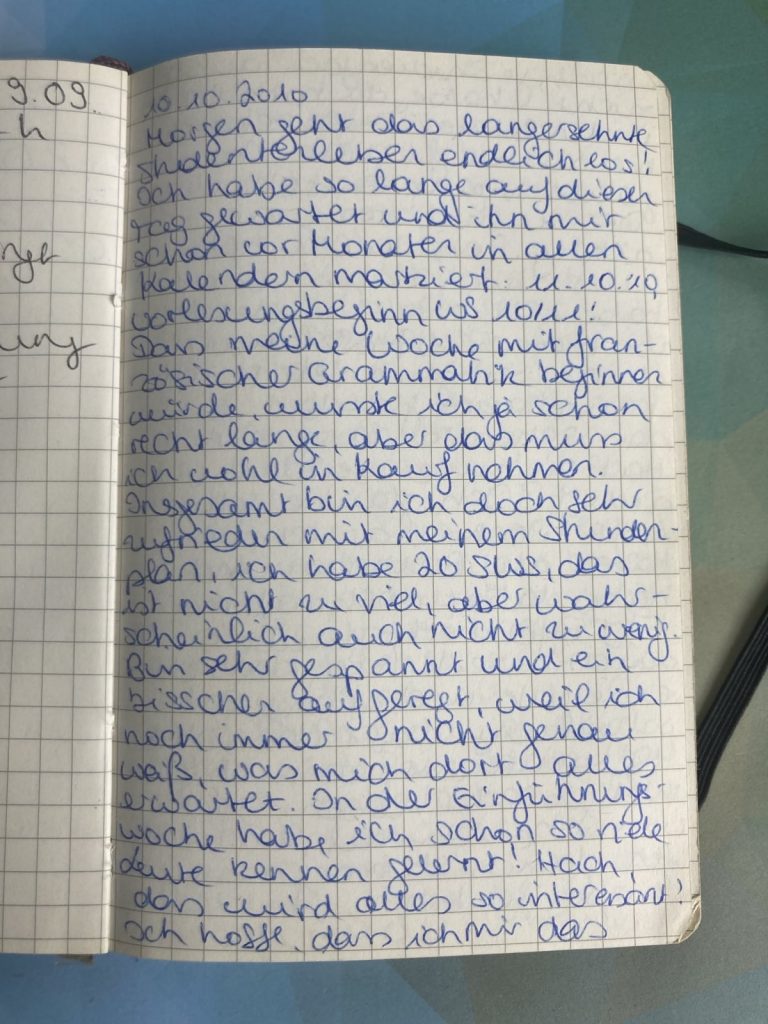 9.09.
10.10.2010
Morgen geht das langersehnte
Studentenleben endlich los!
Ich habe so lange auf diesen
Tag gewartet und ihn mir
schon vor Monaten in allen
Kalendern markiert: 11.10.10,
Vorlesungsbeginn WS 10/11!
Dass meine Woche mit fran-
zösischer Grammatik beginnen
würde, wusste ich ja schon
recht lange, aber das muss
ich wohl in Kauf nehmen.
Insgesamt bin ich doch sehr
zufrieden mit meinem Stunden-
plan, ich habe 20 SWS, das
ist nicht zu viel, aber wahr-
scheinlich auch nicht zu wenig.
Bin sehr gespannt und ein
bisschen aufgeregt, weil ich
noch immer nicht genau
weiß, was mich dort alles
erwartet. In der Einführungs-
woche habe ich schon so viele
Leute kennen gelernt! Hach,
das wird alles so interessant!
Ich hoffe, dass ich mir das